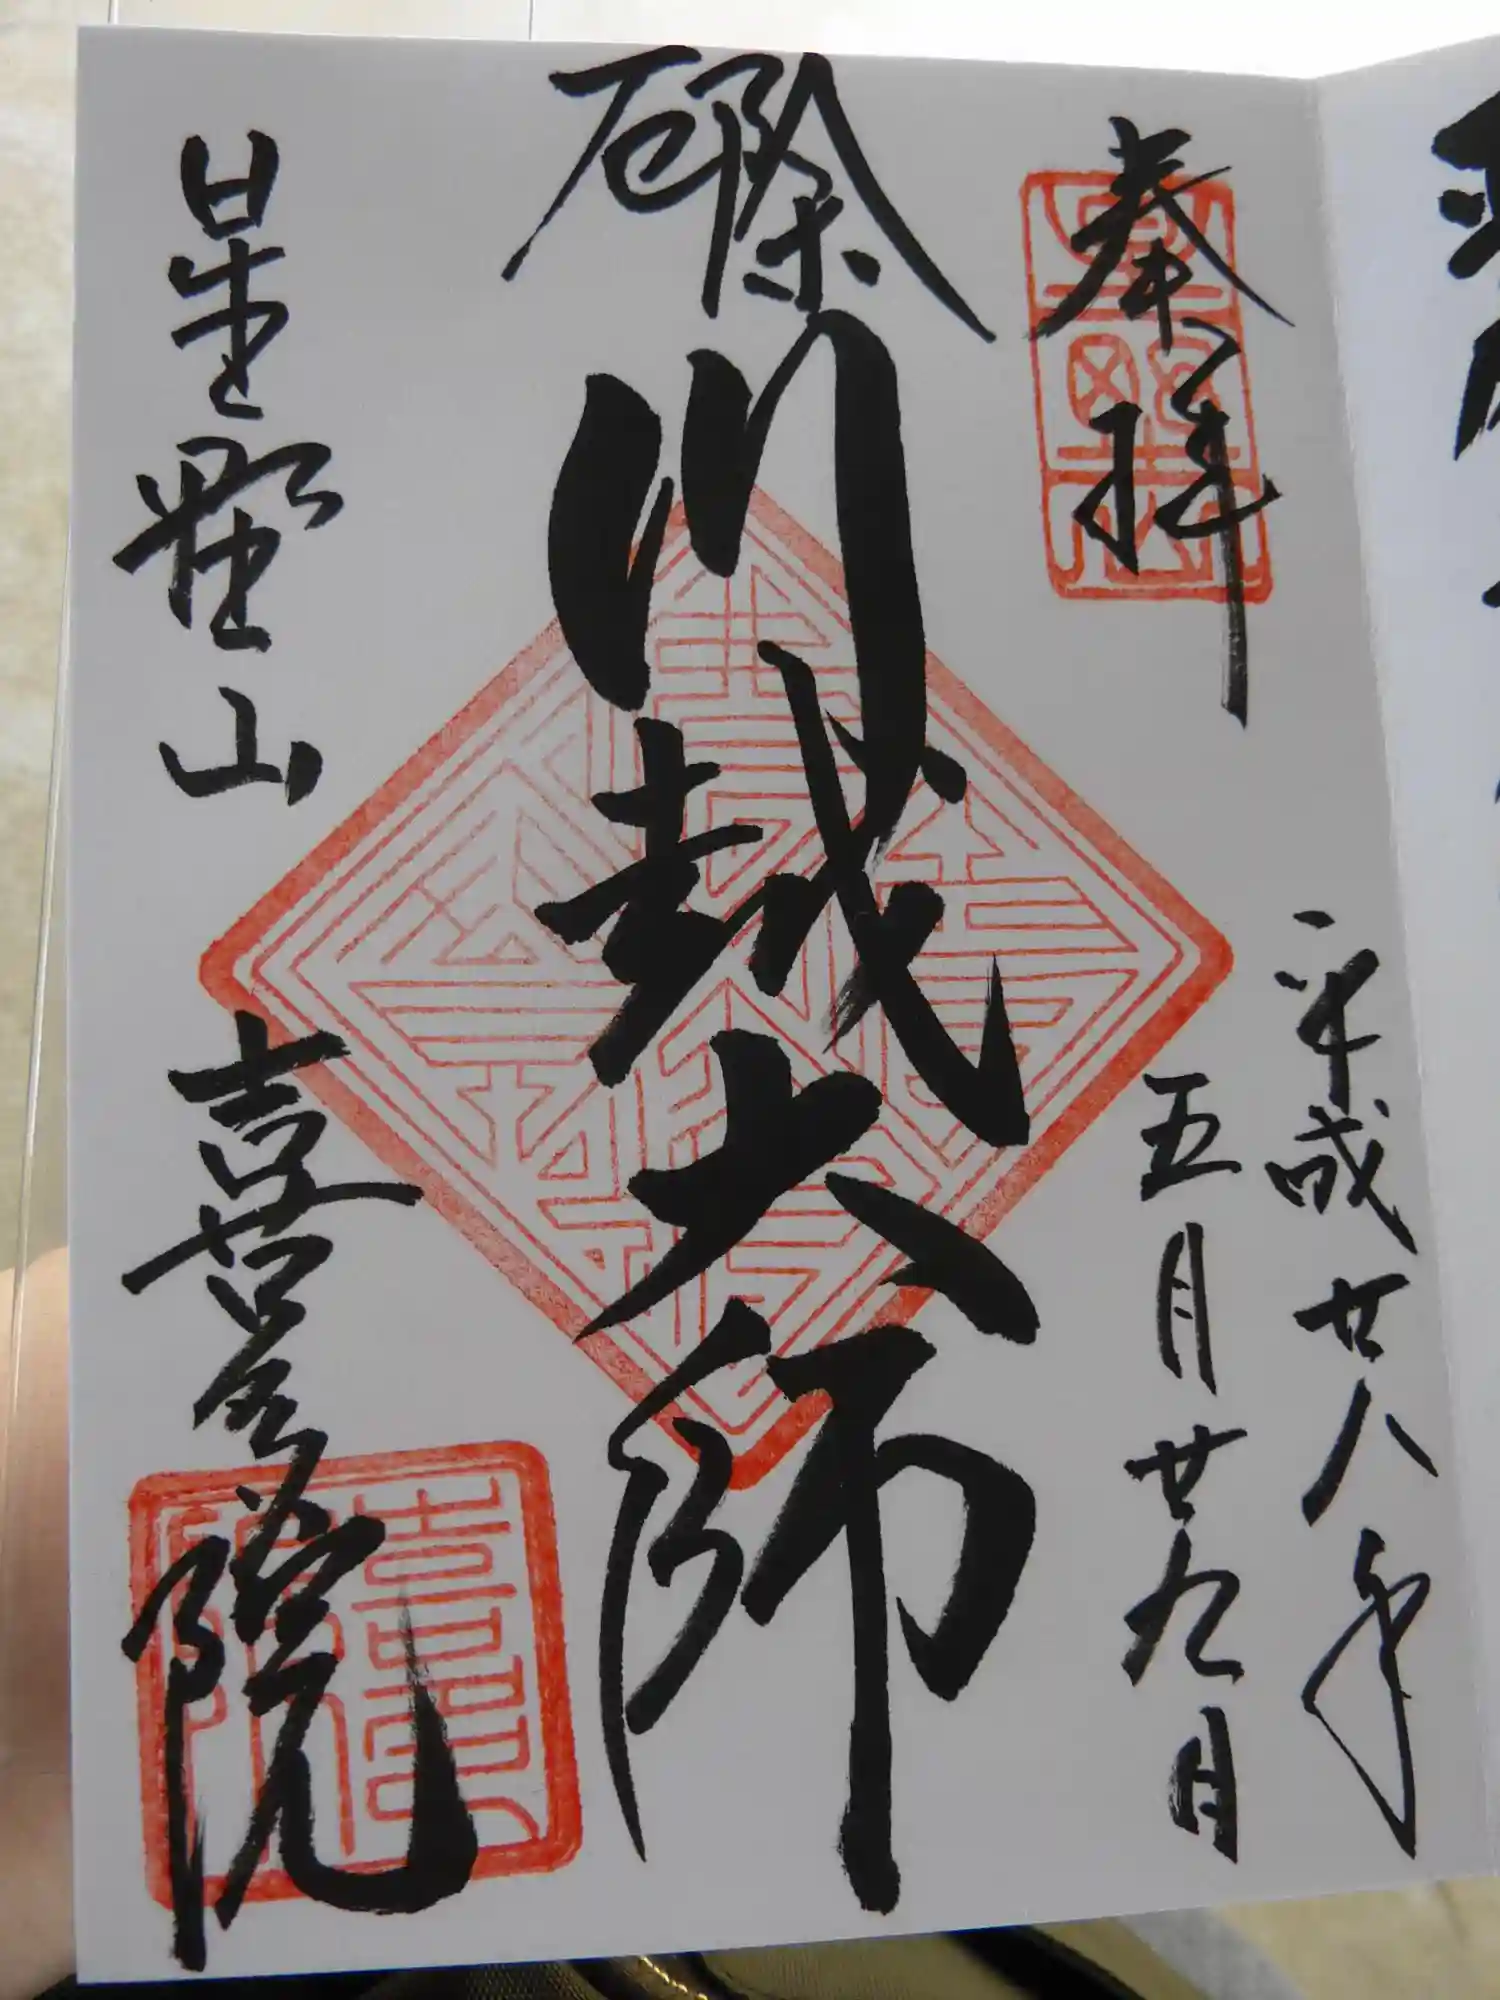 奉拝
平成廿八年
五月廿九日
厄除
川越大師
星野山
喜多院
喜多院